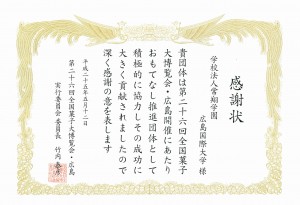 感謝状
学校法人常翔学園
広島国際大学 様
貴団体は第二十六回全国菓子
大博覧会・広島開催にあたり
おもてなし推進団体として
積極的に協力しその成功に
大きく貢献されましたので
深く感謝の意を表します
平成二十五年五月十二日
第二十六回全国菓子大博覧会・広島
実行委員会 委員長